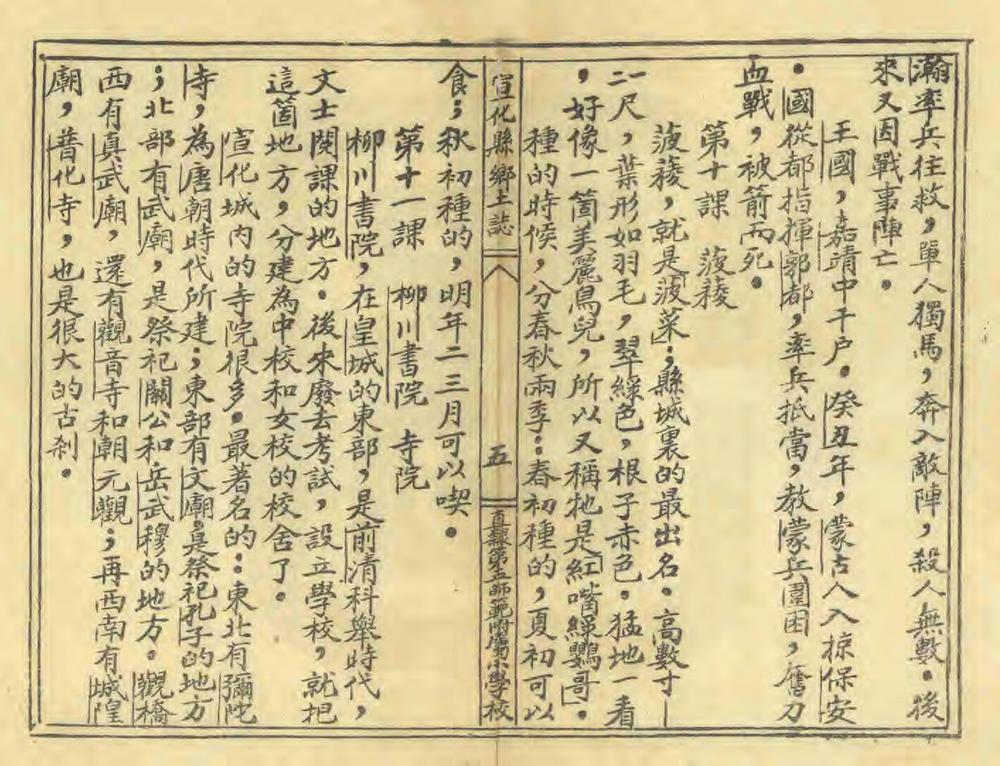 瀚率兵往救，單人獨馬，奔入敵陣，殺人無數。後
來又因戰事陣亡。
王國，嘉靖中千户。癸丑年，蒙古人入掠保安
。國從都指揮郭都，率兵抵當，教蒙兵圍困，奮刀
血戰，被箭而死。
第十課　菠薐
菠薐，就是「菠菜」；縣城裏的最出名。高數寸—
二尺，葉形如羽毛，翠綠色，根子赤色。猛地一看
，好像一箇美麗鳥兒，所以又稱牠是「紅嘴綠鸚哥」。
種的時候，分春秋兩季：春初種的，夏初可以
宣化縣鄉土誌
五
直隸第五師範附屬小學校
食；秋初種的，明年二三月可以喫。
第十一課　柳川書院　寺院
柳川書院，在皇城的東部，是前清科舉時代，
文士閱課的地方。後來廢去考試，設立學校，就把
這箇地方，分建為中校和女校的校舍了。
宣化城內的寺院很多。最著名的：東北有彌陀
寺，為唐朝時代所建；東部有文廟，是祭祀孔子的地方
；北部有武廟，是祭祀關公和岳武穆的地方。觀橋
西有真武廟，還有觀音寺和朝元觀；再西南有城隍
廟，普化寺，也是很大的古刹。